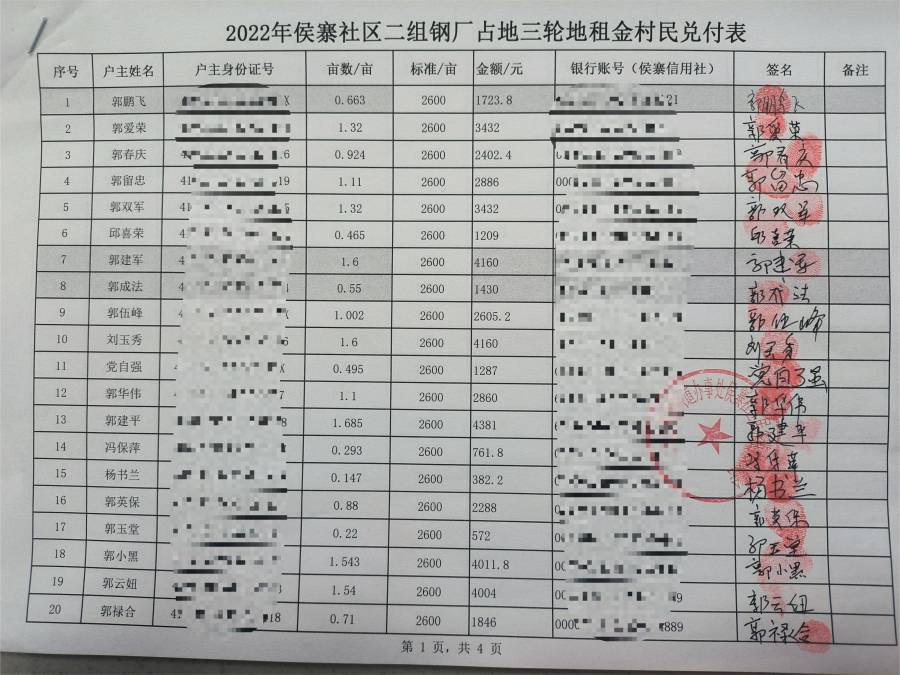 2022年侯寨社区二组钢厂占地三轮地租金村民兑付表
序号 户主姓名 户主身份证号 亩数/亩 标准/亩 金额/元 银行账号（侯寨信用社） 签名 备注
1 郭鹏飞 X 0.663 2600 1723.8 21 郭鹏飞
2 郭爱荣 1.32 2600 3432 郭爱荣
3 郭春庆 4 6 0.924 2600 2402.4 0 郭春庆
4 郭留忠 41 19 1.11 2600 2886 000 郭留忠
5 郭双军 41 5 1.32 2600 3432 0 郭双军
6 邱喜荣 4 0.465 2600 1209 邱喜荣
7 郭建军 4 1.6 2600 4160 郭建军
8 郭成法 4 0.55 2600 1430 郭成法
9 郭伍峰 4 X 1.002 2600 2605.2 郭伍峰
10 刘玉秀 6 1.6 2600 4160 刘玉秀
11 党自强 X 0.495 2600 1287 0 党自强
12 郭华伟 7 1.1 2600 2860 郭华伟
13 郭建平 8 1.685 2600 4381 郭建平
14 冯保萍 0.293 2600 761.8 冯保萍
15 杨书兰 0.147 2600 382.2 杨书兰
16 郭英保 0.88 2600 2288 郭英保
17 郭玉堂 0.22 2600 572 郭玉堂
18 郭小黑 1.543 2600 4011.8 郭小黑
19 郭云妞 1.54 2600 4004 9 郭云妞
20 郭禄合 4 18 0.71 2600 1846 000 889 郭禄合
办事处侯寨
第 1 页，共 4 页